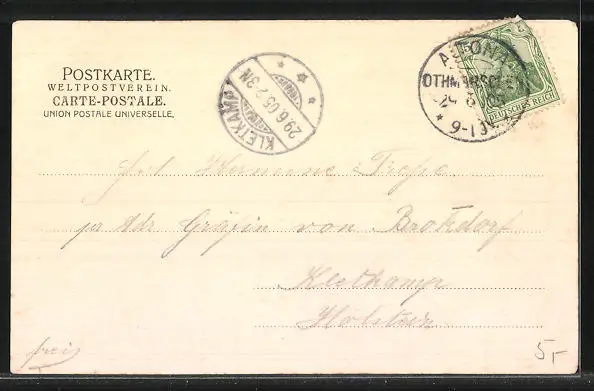 POSTKARTE.
WELTPOSTVEREIN.
CARTE-POSTALE.
UNION POSTALE UNIVERSELLE.
KLETKAMP
29.6.05.2-3N
ALTONA
OTHMARSCHEN
9-10
DEUTSCHES REICH
Frl. Hermine
pr Adr Gräfin von Brokdorf
Kletkamp
Holstein
frei
5,-